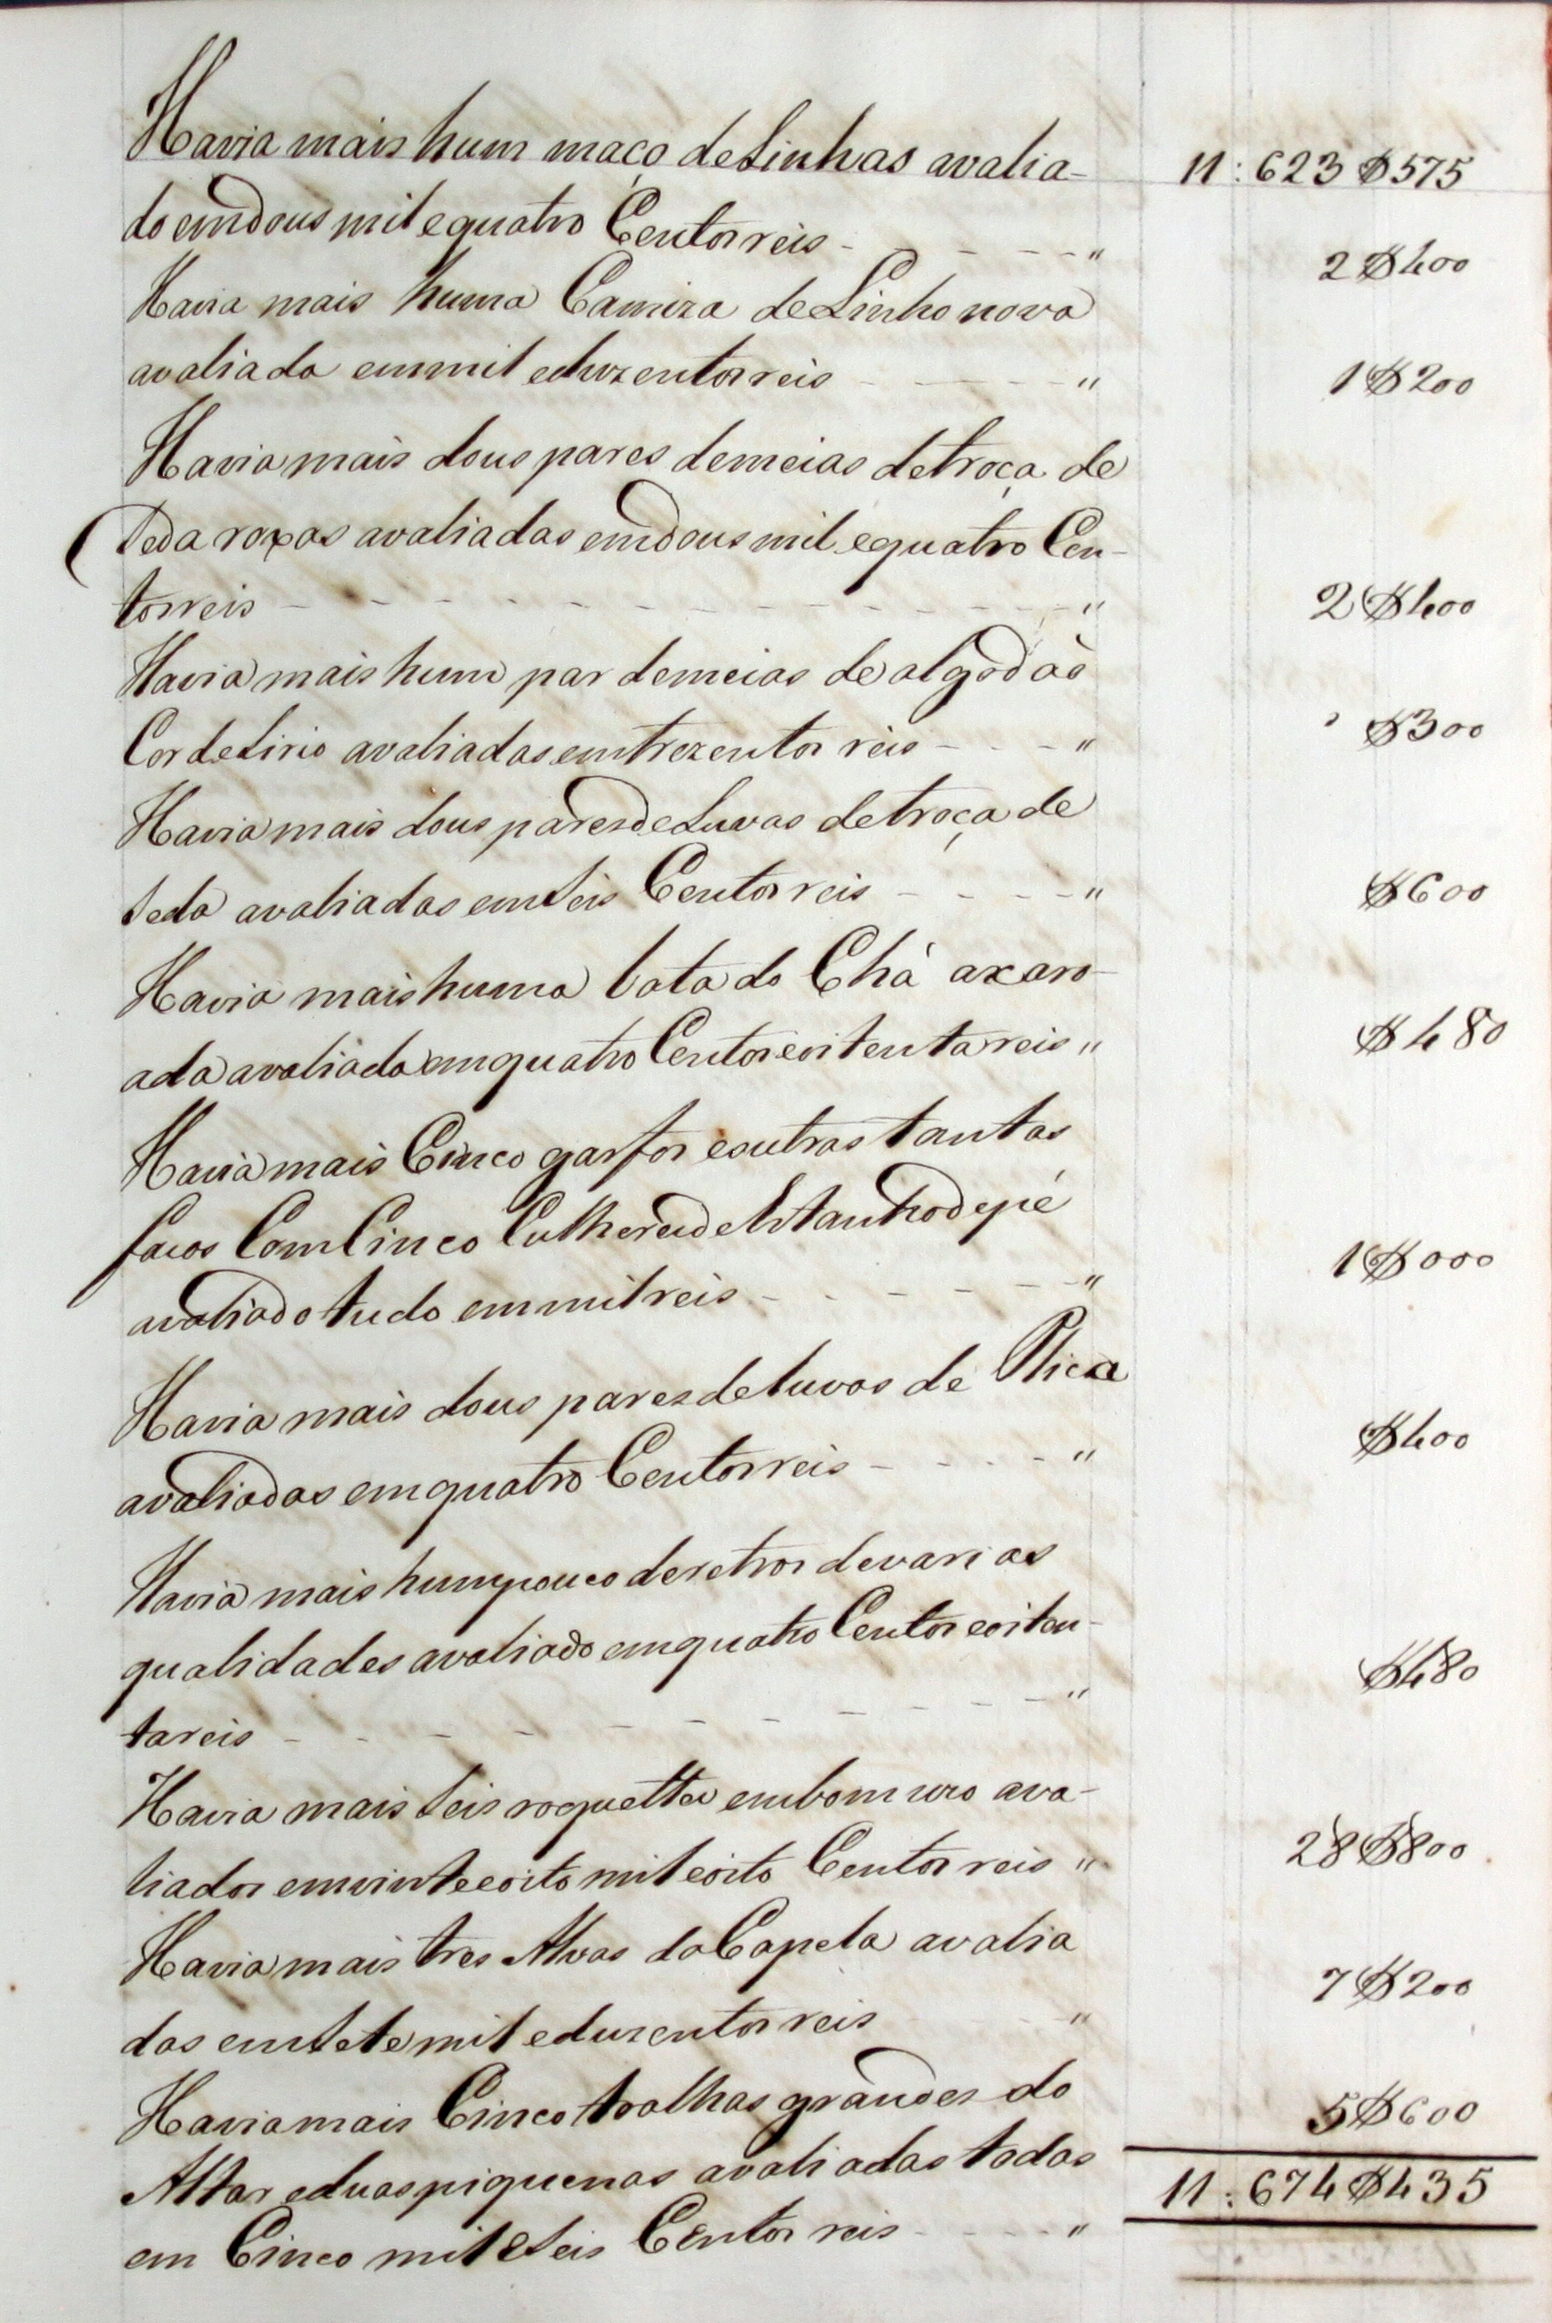 Havia mais hum maço de Linhas avalia- 11:623$575
do em dous mil e quatro Centos reis - - - - " 2$400
Havia mais huma Camiza de Linho nova
avaliada em mil e duzentos reis - - - - " 1$200
Havia mais dous pares de meias de troça de
seda roxas avaliadas em dous mil e quatro Cen-
tos reis - - - - - - - - - - - - " 2$400
Havia mais hum par de meias de algodaò
Cor de Lirio avaliadas em trezentos reis - - - " $300
Havia mais dous pares de Luvas de troça de
seda avaliadas em seis Centos reis - - - - " $600
Havia mais huma bota do Chà axaro-
ada avaliada em quatro Centos e oitenta reis " $480
Havia mais Cinco garfos e outras tantas
facos Com Cinco Culheres de Estanho de pé
avaliado tudo em mil reis - - - - - - " 1$000
Havia mais dous pares de luvas de Plica
avaliadas em quatro Centos reis - - - - " $400
Havia mais hum pouco de retros de varias
qualidades avaliado em quatro Centos e oiten-
ta reis - - - - - - - - - - - " $480
Havia mais seis roquettes em bom uzo ava-
liados em vinte e oito mil e oito Centos reis " 28$800
Havia mais tres Alvas da Capela avalia
das em sete mil e duzentos reis " 7$200
Havia mais Cinco toalhas grandes do
Altar e duas piquenas avaliadas todas
em Cinco mil e seis Centos reis - - - - " 5$600
11:674$435